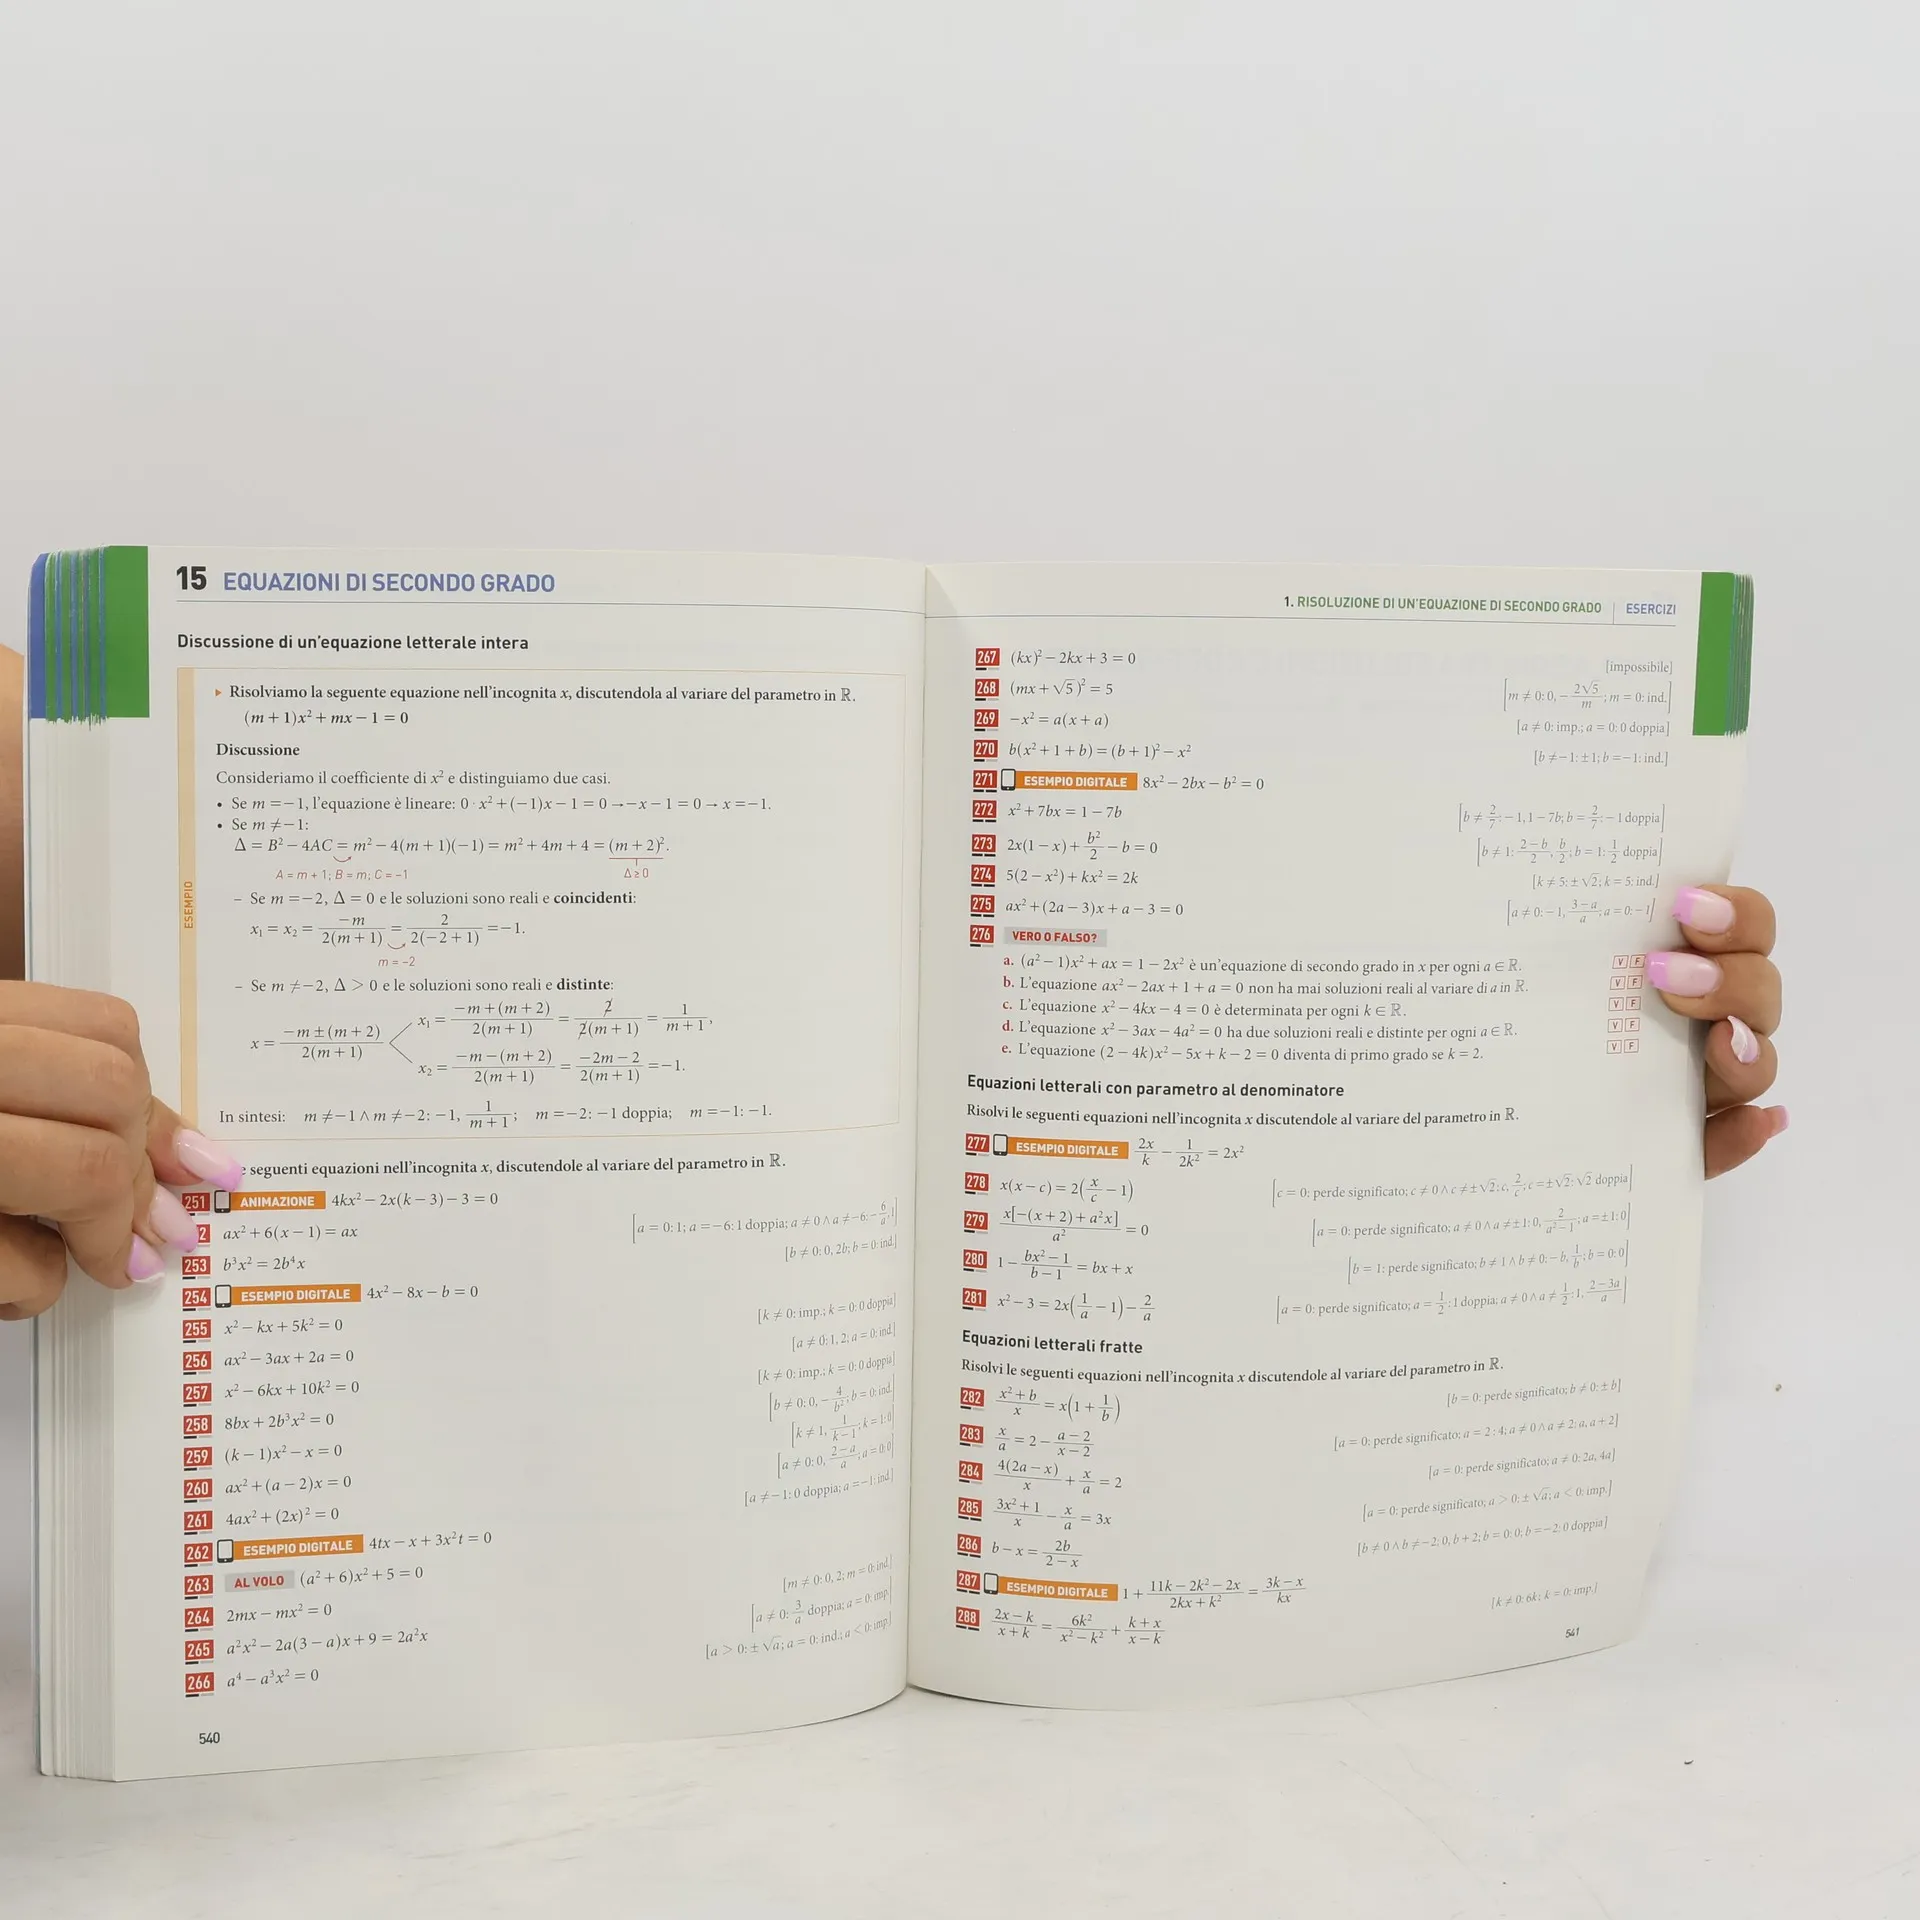 15 EQUAZIONI DI SECONDO GRADO
Discussione di un'equazione letterale intera
ESEMPIO
▸ Risolviamo la seguente equazione nell'incognita x, discutendola al variare del parametro in ℝ.
(m + 1)x² + mx − 1 = 0
Discussione
Consideriamo il coefficiente di x² e distinguiamo due casi.
• Se m = −1, l'equazione è lineare: 0 · x² + (−1)x − 1 = 0 → −x − 1 = 0 → x = −1.
• Se m ≠ −1:
Δ = B² − 4AC = m² − 4(m + 1)(−1) = m² + 4m + 4 = (m + 2)².
A = m + 1; B = m; C = −1 Δ ≥ 0
– Se m = −2, Δ = 0 e le soluzioni sono reali e coincidenti:
x₁ = x₂ = −m / 2(m + 1) = 2 / 2(−2 + 1) = −1.
m = −2
– Se m ≠ −2, Δ > 0 e le soluzioni sono reali e distinte:
x = −m ± (m + 2) / 2(m + 1)
x₁ = −m + (m + 2) / 2(m + 1) = 2 / 2(m + 1) = 1 / m + 1,
x₂ = −m − (m + 2) / 2(m + 1) = −2m − 2 / 2(m + 1) = −1.
In sintesi: m ≠ −1 ∧ m ≠ −2: −1, 1 / m + 1; m = −2: −1 doppia; m = −1: −1.
seguenti equazioni nell'incognita x, discutendole al variare del parametro in ℝ.
251 ANIMAZIONE 4kx² − 2x(k − 3) − 3 = 0
2 ax² + 6(x − 1) = ax [a = 0: 1; a = −6: 1 doppia; a ≠ 0 ∧ a ≠ −6: −6/a, 1]
253 b³x² = 2b⁴x [b ≠ 0: 0, 2b; b = 0: ind.]
254 ESEMPIO DIGITALE 4x² − 8x − b = 0
255 x² − kx + 5k² = 0 [k ≠ 0: imp.; k = 0: 0 doppia]
256 ax² − 3ax + 2a = 0 [a ≠ 0: 1, 2; a = 0: ind.]
257 x² − 6kx + 10k² = 0 [k ≠ 0: imp.; k = 0: 0 doppia]
258 8bx + 2b³x² = 0 [b ≠ 0: 0, −4/b²; b = 0: ind.]
259 (k − 1)x² − x = 0 [k ≠ 1, 1/k − 1; k = 1: 0]
260 ax² + (a − 2)x = 0 [a ≠ 0: 0, 2 − a/a; a = 0: 0]
261 4ax² + (2x)² = 0 [a ≠ −1: 0 doppia; a = −1: ind.]
262 ESEMPIO DIGITALE 4tx − x + 3x²t = 0
263 AL VOLO (a² + 6)x² + 5 = 0
264 2mx − mx² = 0 [m ≠ 0: 0, 2; m = 0: ind.]
265 a²x² − 2a(3 − a)x + 9 = 2a²x [a ≠ 0: 3/a doppia; a = 0: imp.]
266 a⁴ − a³x² = 0 [a > 0: ± √a; a = 0: ind.; a < 0: imp.]
540
1. RISOLUZIONE DI UN'EQUAZIONE DI SECONDO GRADO | ESERCIZI
267 (kx)² − 2kx + 3 = 0 [impossibile]
268 (mx + √5)² = 5 [m ≠ 0: 0, −2√5/m; m = 0: ind.]
269 −x² = a(x + a) [a ≠ 0: imp.; a = 0: 0 doppia]
270 b(x² + 1 + b) = (b + 1)² − x² [b ≠ −1: ±1; b = −1: ind.]
271 ESEMPIO DIGITALE 8x² − 2bx − b² = 0
272 x² + 7bx = 1 − 7b [b ≠ 2/7: −1, 1 − 7b; b = 2/7: −1 doppia]
273 2x(1 − x) + b²/2 − b = 0 [b ≠ 1: 2 − b/2, b/2; b = 1: 1/2 doppia]
274 5(2 − x²) + kx² = 2k [k ≠ 5: ± √2; k = 5: ind.]
275 ax² + (2a − 3)x + a − 3 = 0 [a ≠ 0: −1, 3 − a/a; a = 0: −1]
276 VERO O FALSO?
a. (a² − 1)x² + ax = 1 − 2x² è un'equazione di secondo grado in x per ogni a ∈ ℝ. V F
b. L'equazione ax² − 2ax + 1 + a = 0 non ha mai soluzioni reali al variare di a in ℝ. V F
c. L'equazione x² − 4kx − 4 = 0 è determinata per ogni k ∈ ℝ. V F
d. L'equazione x² − 3ax − 4a² = 0 ha due soluzioni reali e distinte per ogni a ∈ ℝ. V F
e. L'equazione (2 − 4k)x² − 5x + k − 2 = 0 diventa di primo grado se k = 2. V F
Equazioni letterali con parametro al denominatore
Risolvi le seguenti equazioni nell'incognita x discutendole al variare del parametro in ℝ.
277 ESEMPIO DIGITALE 2x/k − 1/2k² = 2x²
278 x(x − c) = 2(x/c − 1) [c = 0: perde significato; c ≠ 0 ∧ c ≠ ±√2: c, 2/c; c = ±√2: √2 doppia]
279 x[−(x + 2) + a²x] / a² = 0 [a = 0: perde significato; a ≠ 0 ∧ a ≠ ±1: 0, 2/a² − 1; a = ±1: 0]
280 1 − bx² − 1 / b − 1 = bx + x [b = 1: perde significato; b ≠ 1 ∧ b ≠ 0: −b, 1/b; b = 0: 0]
281 x² − 3 = 2x(1/a − 1) − 2/a [a = 0: perde significato; a = 1/2: 1 doppia; a ≠ 0 ∧ a ≠ 1/2: 1, 2 − 3a/a]
Equazioni letterali fratte
Risolvi le seguenti equazioni nell'incognita x discutendole al variare del parametro in ℝ.
282 x² + b / x = x(1 + 1/b) [b = 0: perde significato; b ≠ 0: ± b]
283 x/a = 2 − a − 2 / x − 2 [a = 0: perde significato; a = 2: 4; a ≠ 0 ∧ a ≠ 2: a, a + 2]
284 4(2a − x) / x + x/a = 2 [a = 0: perde significato; a ≠ 0: 2a, 4a]
285 3x² + 1 / x − x/a = 3x [a = 0: perde significato; a > 0: ± √a; a < 0: imp.]
286 b − x = 2b / 2 − x [b ≠ 0 ∧ b ≠ −2: 0, b + 2; b = 0: 0; b = −2: 0 doppia]
287 ESEMPIO DIGITALE 1 + 11k − 2k² − 2x / 2kx + k² = 3k − x / kx
288 2x − k / x + k = 6k² / x² − k² + k + x / x − k [k ≠ 0: 6k; k = 0: imp.]
541